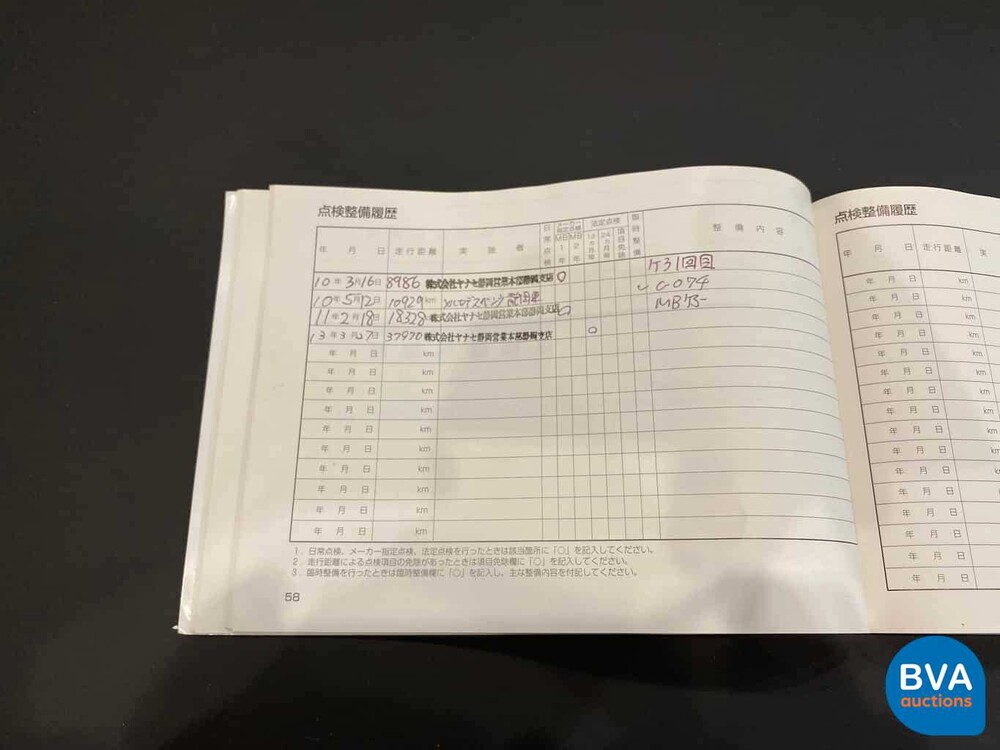 点検整備履歴
年 月 日 走行距離 実施者 日常点検 メーカー指定点検 MB1年 MB2年 法定点検 12カ月毎 24カ月毎 項目免除 臨時整備 整備内容
10年3月16日 8986 株式会社ヤナセ静岡営業本部静岡支店 ○ 1回目
10年5月12日 10929km
11年2月18日 18328 株式会社ヤナセ静岡営業本部静岡支店 ○
13年3月27日 37970 株式会社ヤナセ静岡営業本部静岡支店 ○
年 月 日 km
年 月 日 km
年 月 日 km
年 月 日 km
年 月 日 km
年 月 日 km
年 月 日 km
年 月 日 km
年 月 日 km
年 月 日 km
1. 日常点検、メーカー指定点検、法定点検を行ったときは該当箇所に「○」を記入してください。
2. 走行距離による点検項目の免除があったときは項目免除欄に「○」を記入してください。
3. 臨時整備を行ったときは臨時整備欄に「○」を記入し、主な整備内容を付記してください。
58
点検整備履歴
年 月 日 走行距離 実
年 月 日 km
年 月 日 km
年 月 日 km
年 月 日 km
年 月 日 km
年 月 日 km
年 月 日 km
年 月 日 km
年 月 日 km
年 月 日 km
年 月 日 km
年 月 日 km
年 月 日 km
年 月 日 km
BVA
auctions